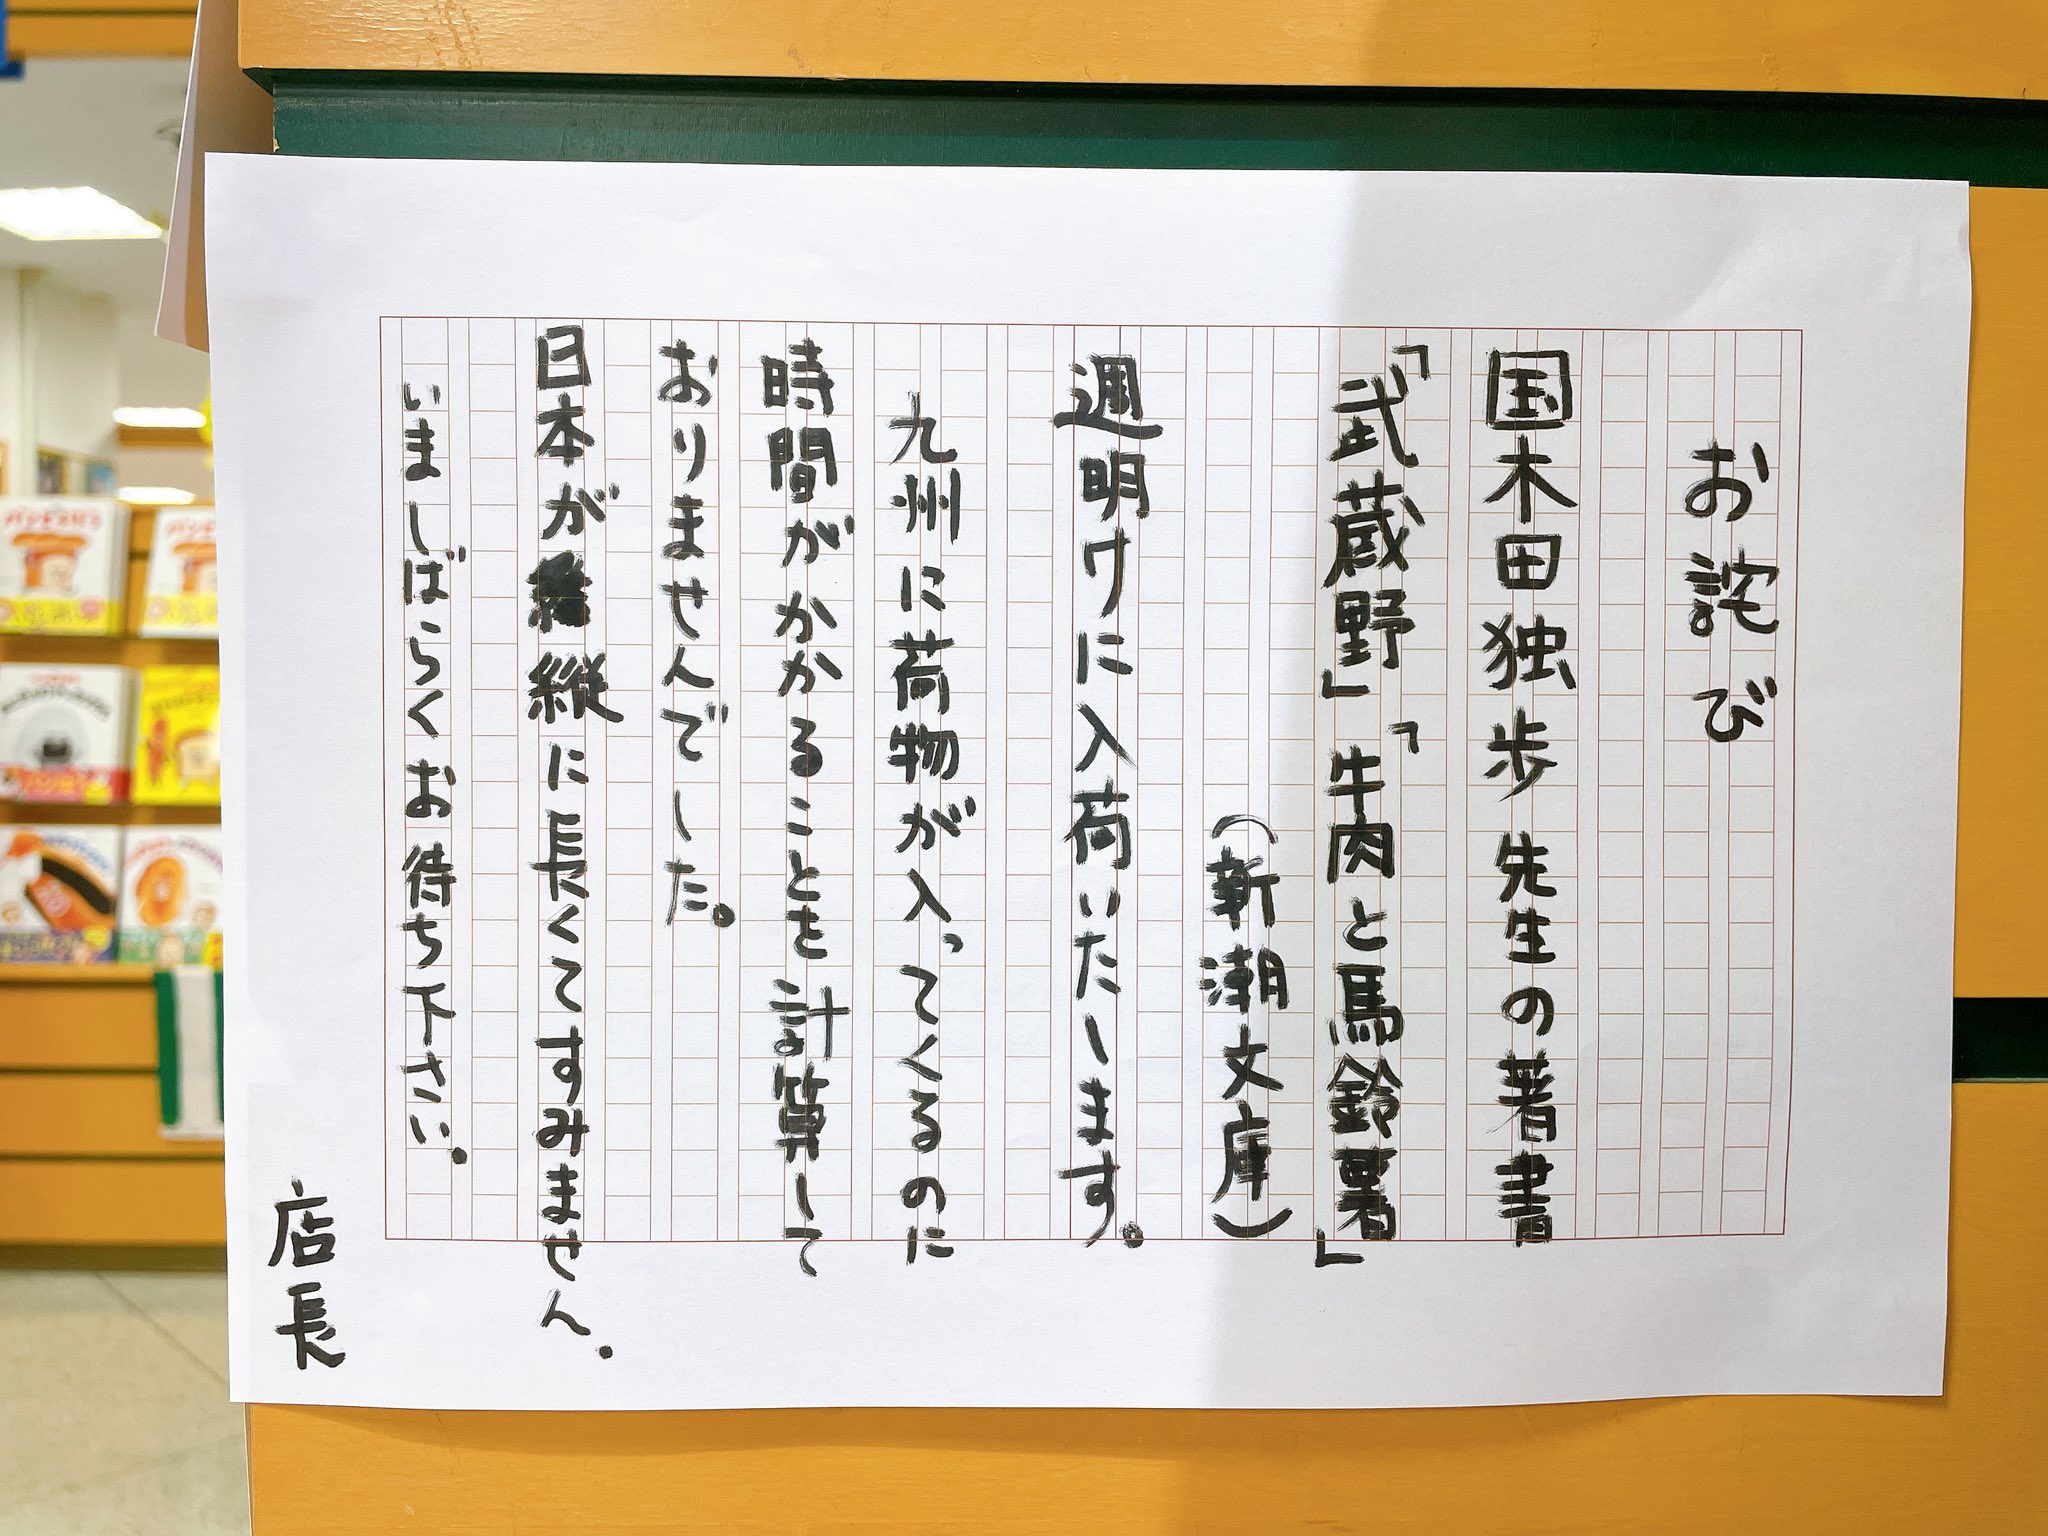 お詫び
国木田独歩先生の著書
「武蔵野」「牛肉と馬鈴署」
（新潮文庫）
週明けに入荷いたします。
九州に荷物が入ってくるのに
時間がかかることを計算して
おりませんでした。
日本が縦に長くてすみません。
いましばらくお待ち下さい。
店長